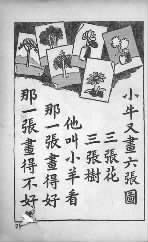 小牛又畫六張圖
三張花
三張樹
他叫小羊看
那一張畫得好
那一張畫得不好